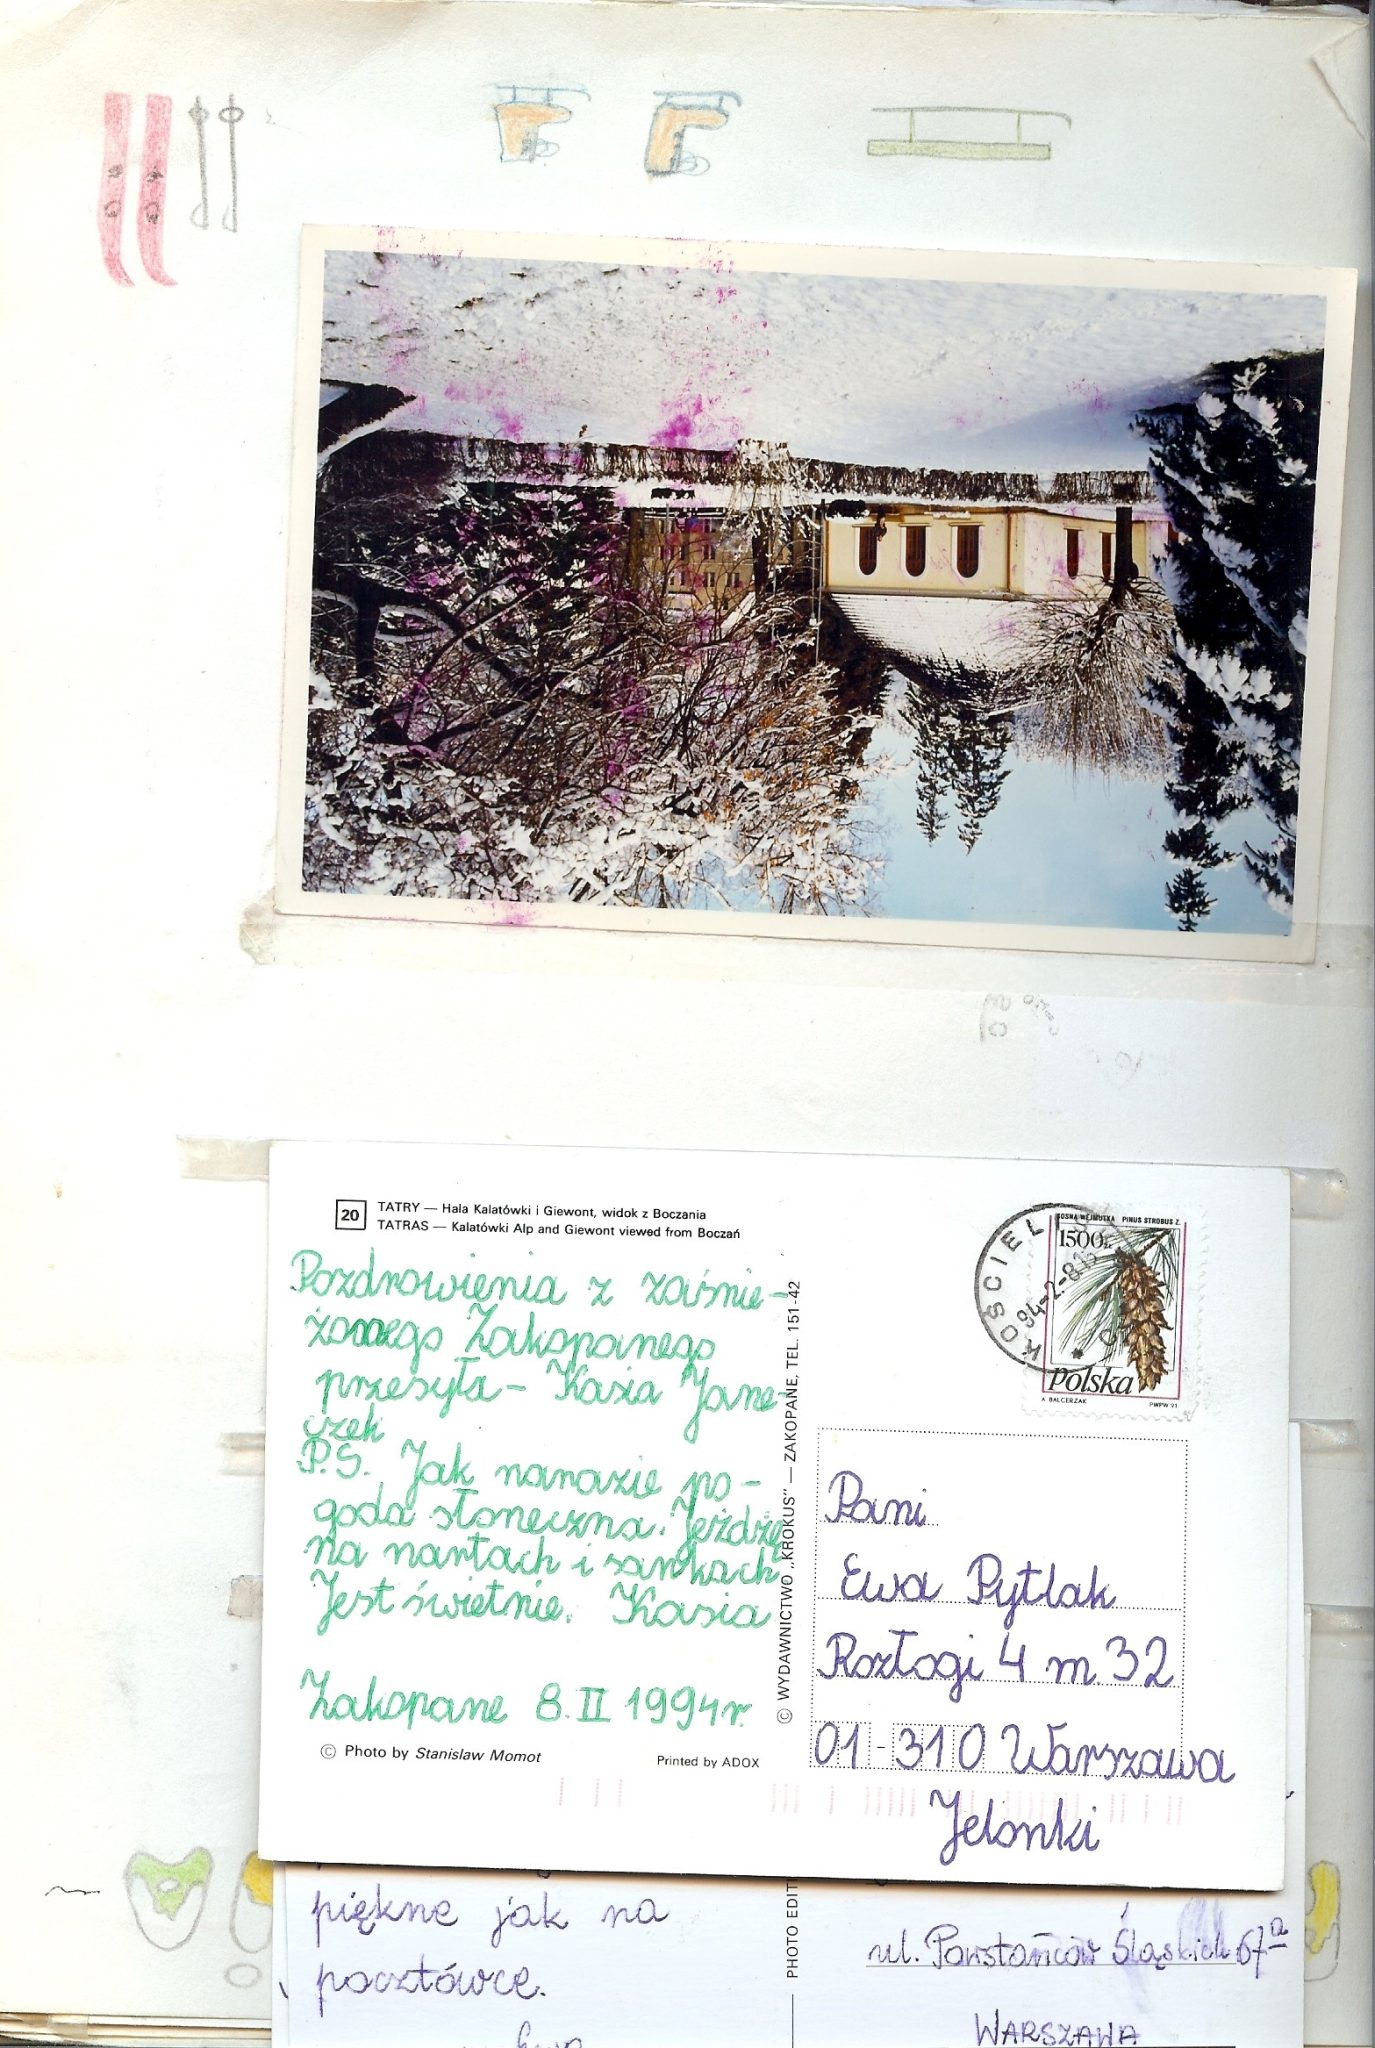 20
TATRY — Hala Kalatówki i Giewont, widok z Boczania
TATRAS — Kalatówki Alp and Giewont viewed from Boczań
Pozdrowienia z zaśnie-
żonego Zakopanego
przesyła - Kasia Jane-
czek
P.S. Jak narazie po-
goda słoneczna. Jeżdżę
na nartach i sankach
Jest świetnie. Kasia
Zakopane 8.II 1994r.
© Photo by Stanisław Momot
Printed by ADOX
© WYDAWNICTWO „KROKUS” — ZAKOPANE, TEL. 151-42
KOŚCIEL
94-2-8
SOSNA WEJMUTKA PINUS STROBUS Z.
1500zł
Polska
A. BALCERZAK
PWPW '91
Pani
Ewa Pytlak
Rozłogi 4 m. 32
01-310 Warszawa
Jelonki
piękne jak na
pocztówce.
PHOTO EDIT
ul. Powstańców Śląskich 67a
WARSZAWA